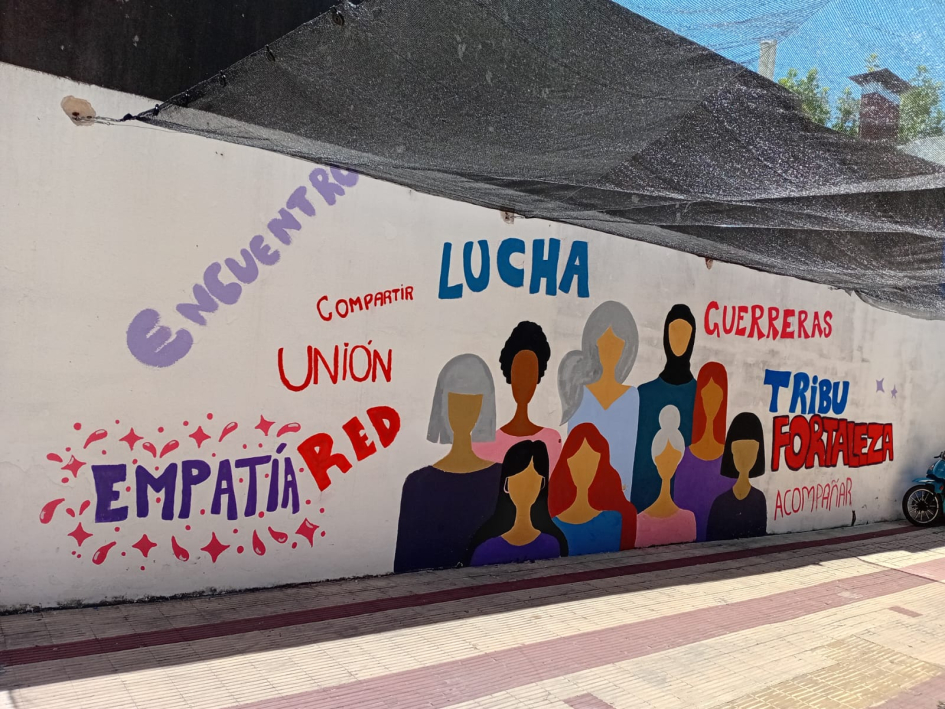 ENCUENTRO
COMPARTIR
LUCHA
UNIÓN
RED
EMPATÍA
GUERRERAS
TRIBU
FORTALEZA
ACOMPAÑAR